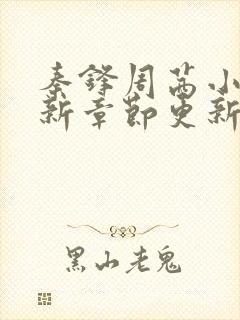 秦锋周茜小
新章节更新
黑山老鬼